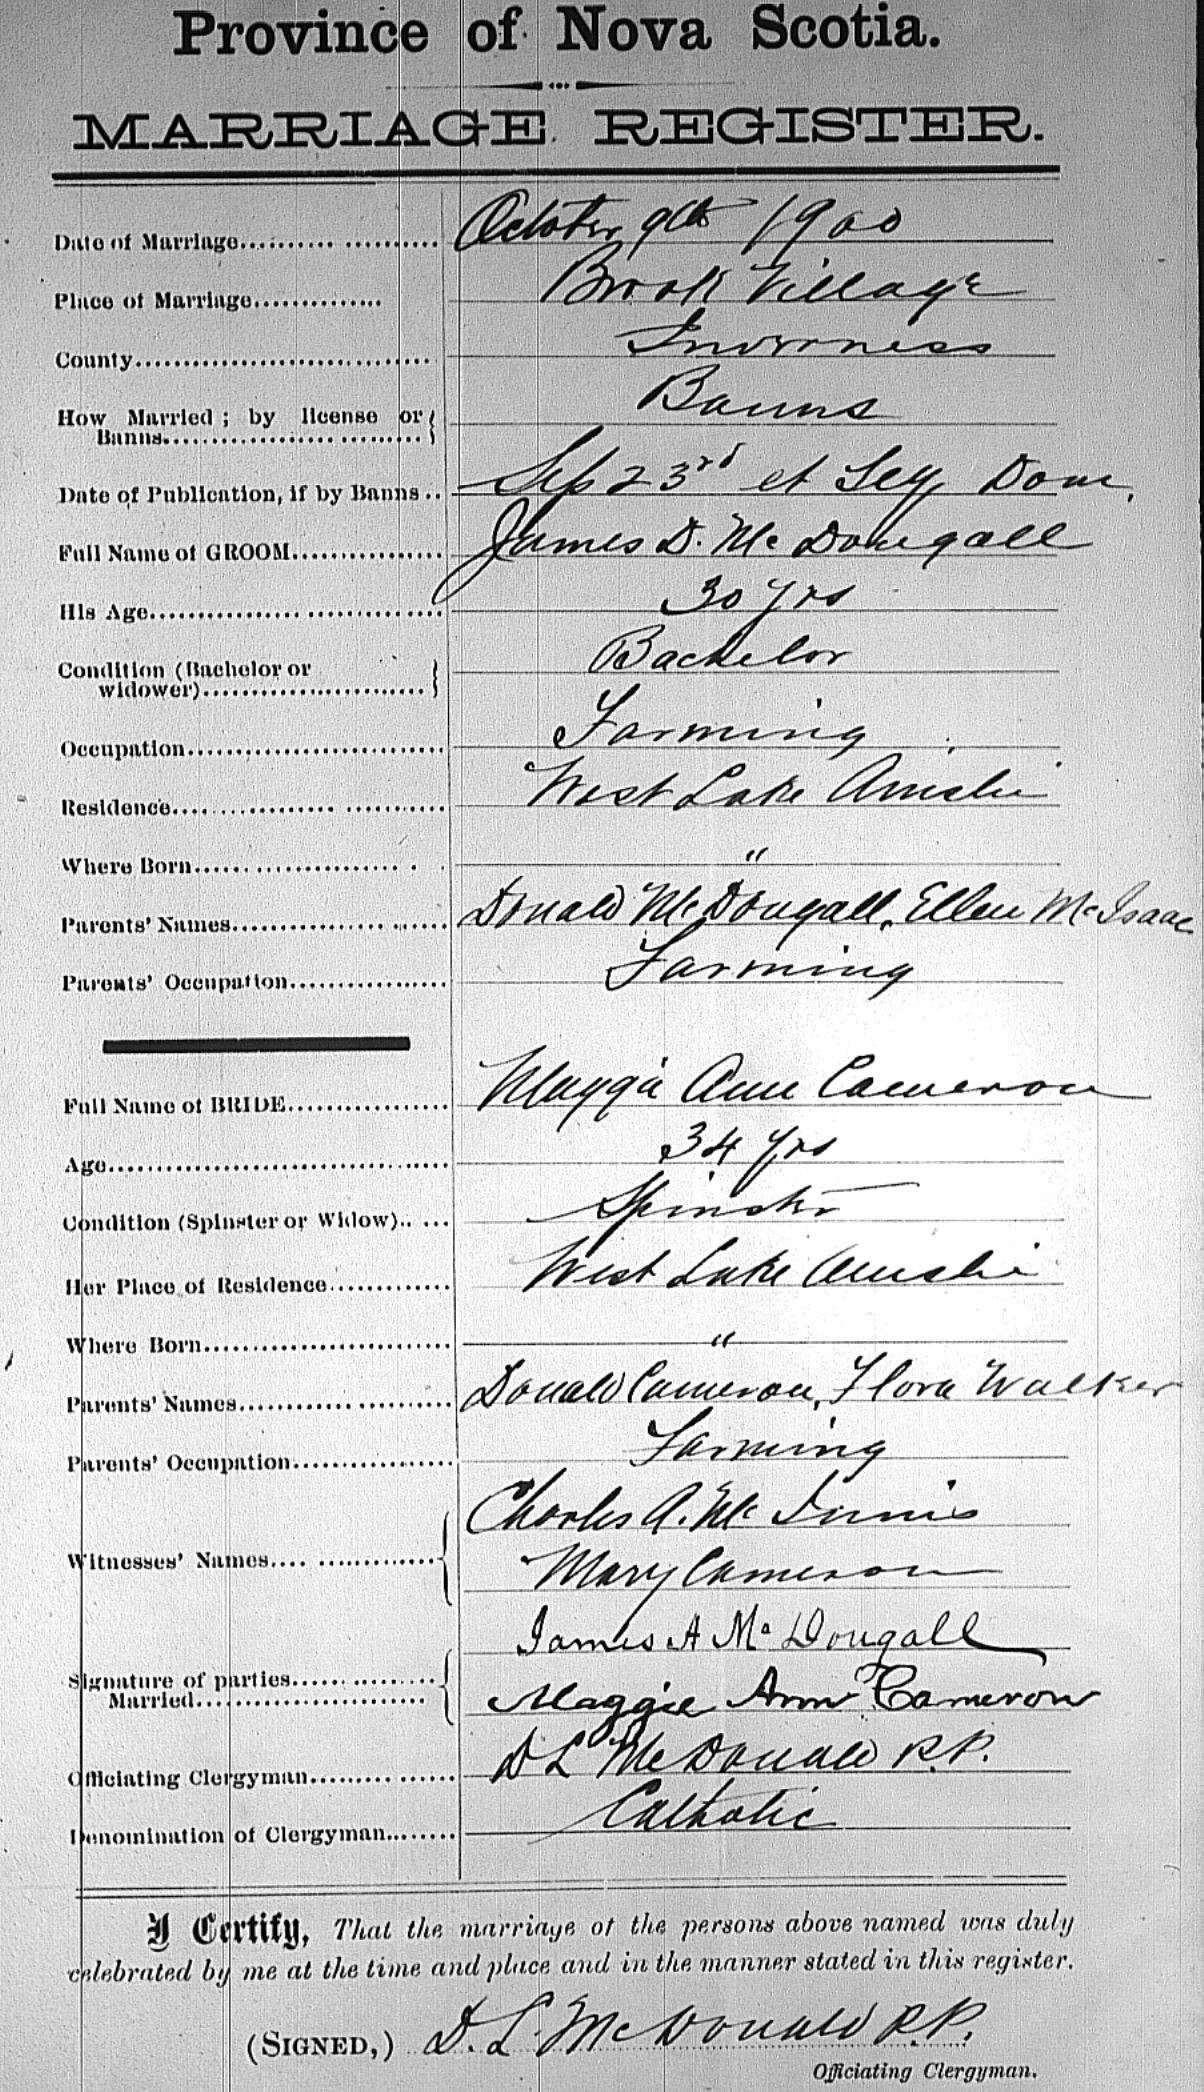 Province of Nova Scotia.
MARRIAGE REGISTER.
Date of Marriage October 9th 1900
Place of Marriage Brook Village
County Inverness
How Married; by license or Banns Banns
Date of Publication, if by Banns Sep 23rd et Seq Dom.
Full Name of GROOM James D. McDougall
His Age 30 yrs
Condition (Bachelor or widower) Bachelor
Occupation Farming
Residence West Lake Ainslie
Where Born "
Parents' Names Donald McDougall, Ellen McIsaac
Parents' Occupation Farming
Full Name of BRIDE Maggie Ann Cameron
Age 34 yrs
Condition (Spinster or Widow) Spinster
Her Place of Residence West Lake Ainslie
Where Born "
Parents' Names Donald Cameron, Flora Walker
Parents' Occupation Farming
Witnesses' Names Charles A. McInnis
Mary Cameron
Signature of parties Married James A McDougall
Maggie Ann Cameron
Officiating Clergyman D L McDonald P.P.
Denomination of Clergyman Catholic
I Certify, That the marriage of the persons above named was duly
celebrated by me at the time and place and in the manner stated in this register.
(SIGNED,) D. L. McDonald P.P.
Officiating Clergyman.